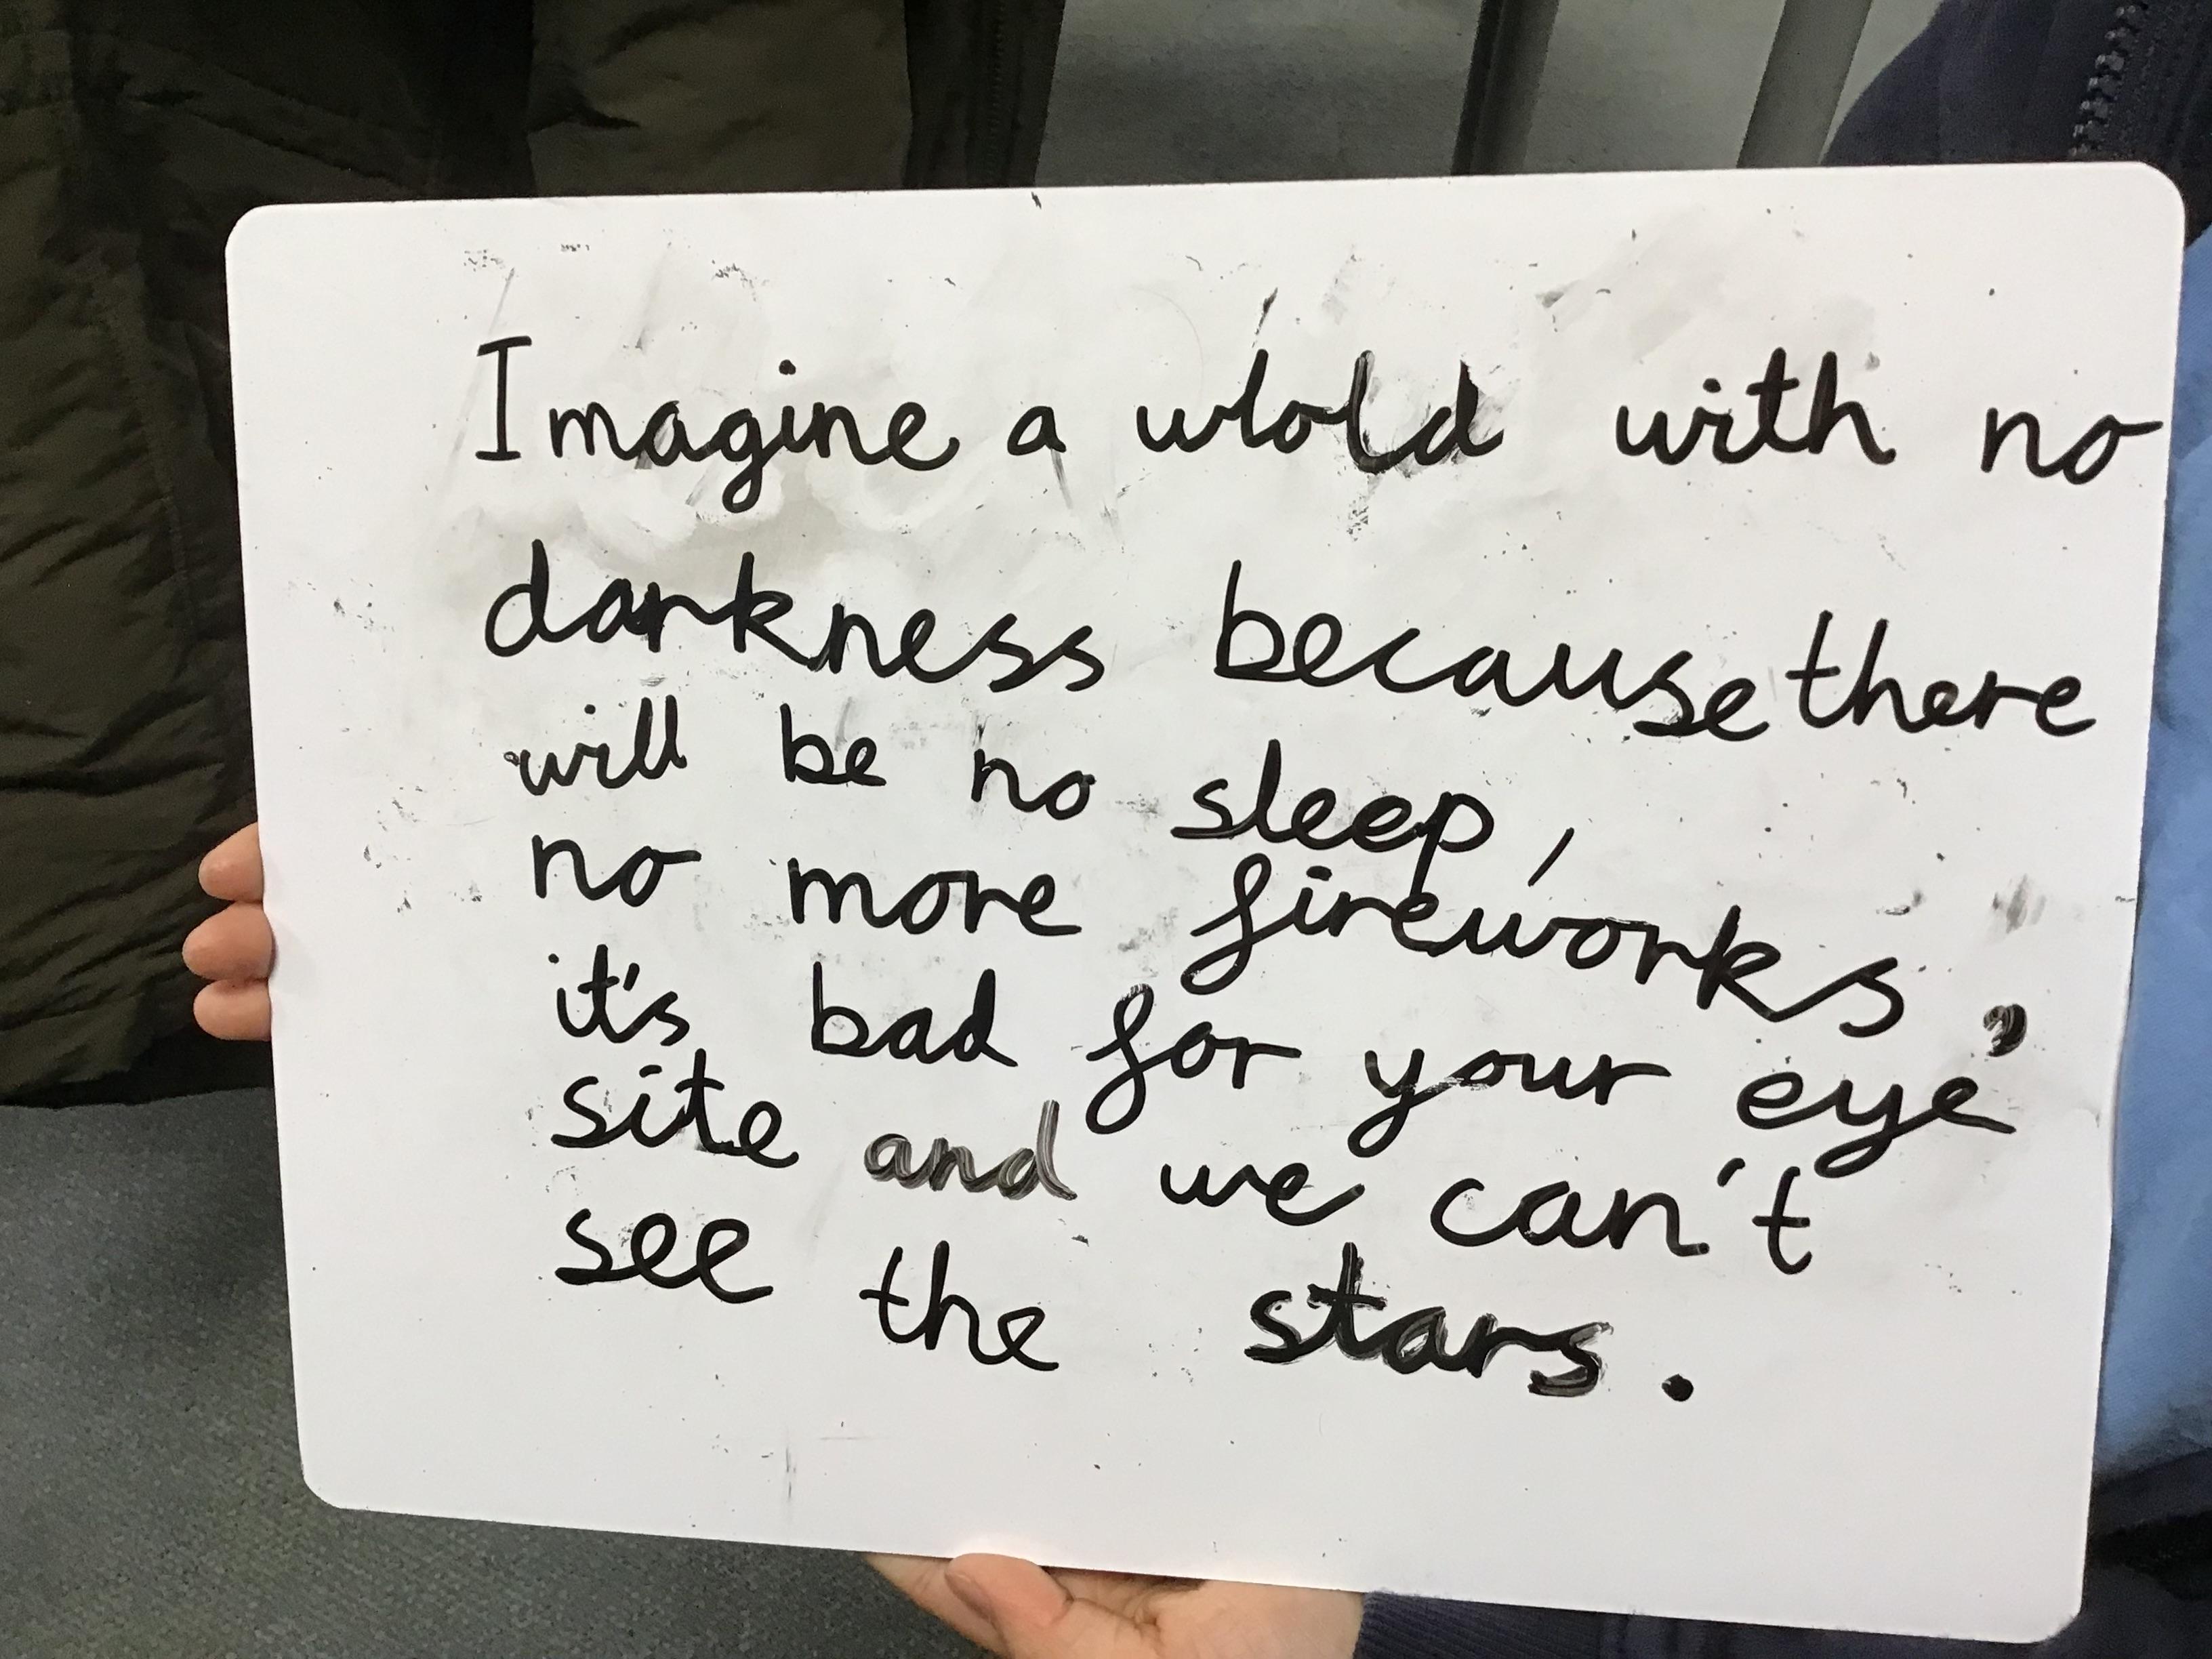 Imagine a wlold with no
darkness because there
will be no sleep,
no more fireworks,
it's bad for your eye
site and we can't
see the stars.